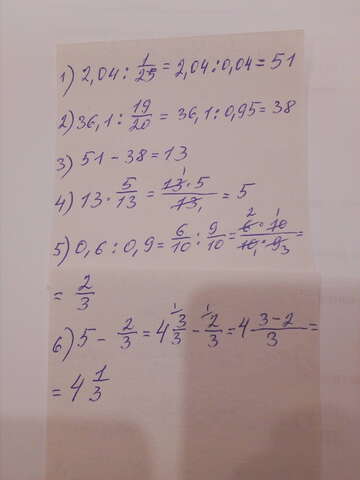 1) 2,04 : 1/25 = 2,04 : 0,04 = 51
2) 36,1 : 19/20 = 36,1 : 0,95 = 38
3) 51 - 38 = 13
4) 13 · 5/13 = 13 · 5/13 1 1 = 5
5) 0,6 : 0,9 = 6/10 : 9/10 = 6 · 10/10 · 9 2 1 1 3 =
= 2/3
6) 5 - 2/3 = 4 3/3 1 - 2/3 1 = 4 3-2/3 =
= 4 1/3